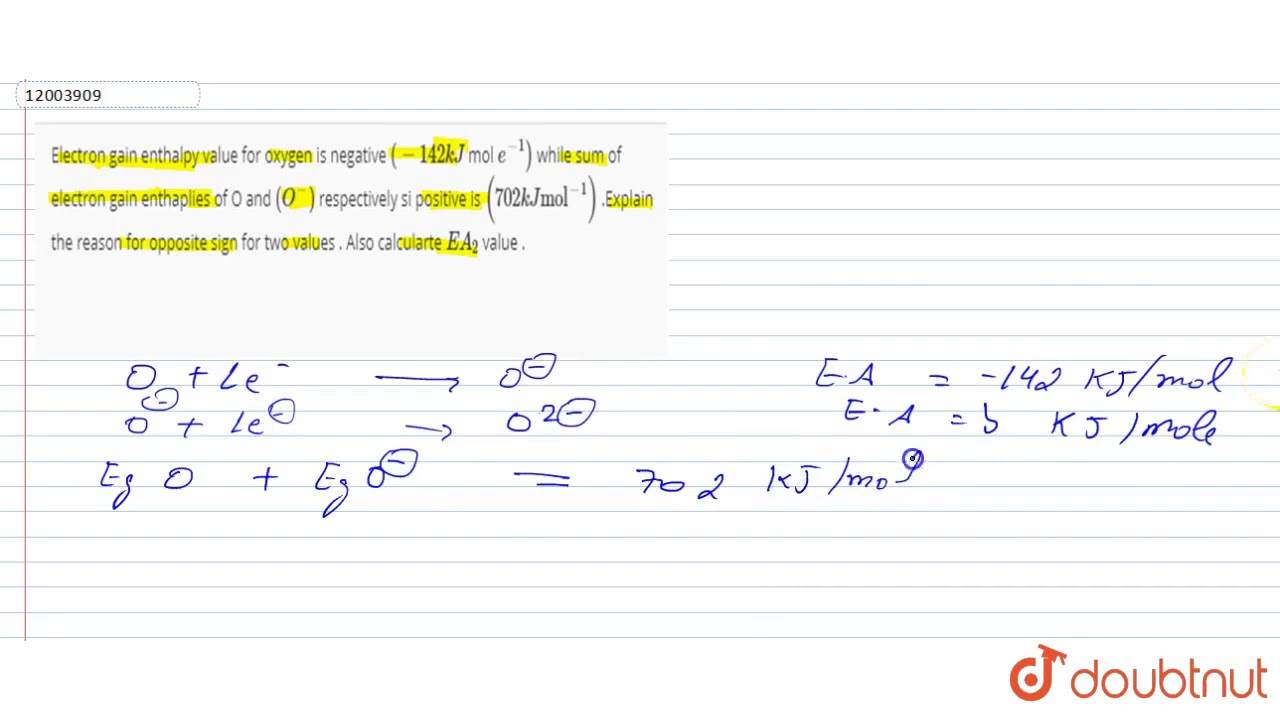 12003909
Electron gain enthalpy value for oxygen is negative (−142kJ mol e⁻¹) while sum of
electron gain enthaplies of O and (O⁻) respectively si positive is (702kJmol⁻¹) .Explain
the reason for opposite sign for two values . Also calcularte EA₂ value .
O + 1e⁻ → O⊖ E·A = -142 KJ/mol
O⊖ + 1e⊖ → O2⊖ E·A = b KJ/mole
Eg O + Eg O⊖ = 702 KJ/mol
doubtnut